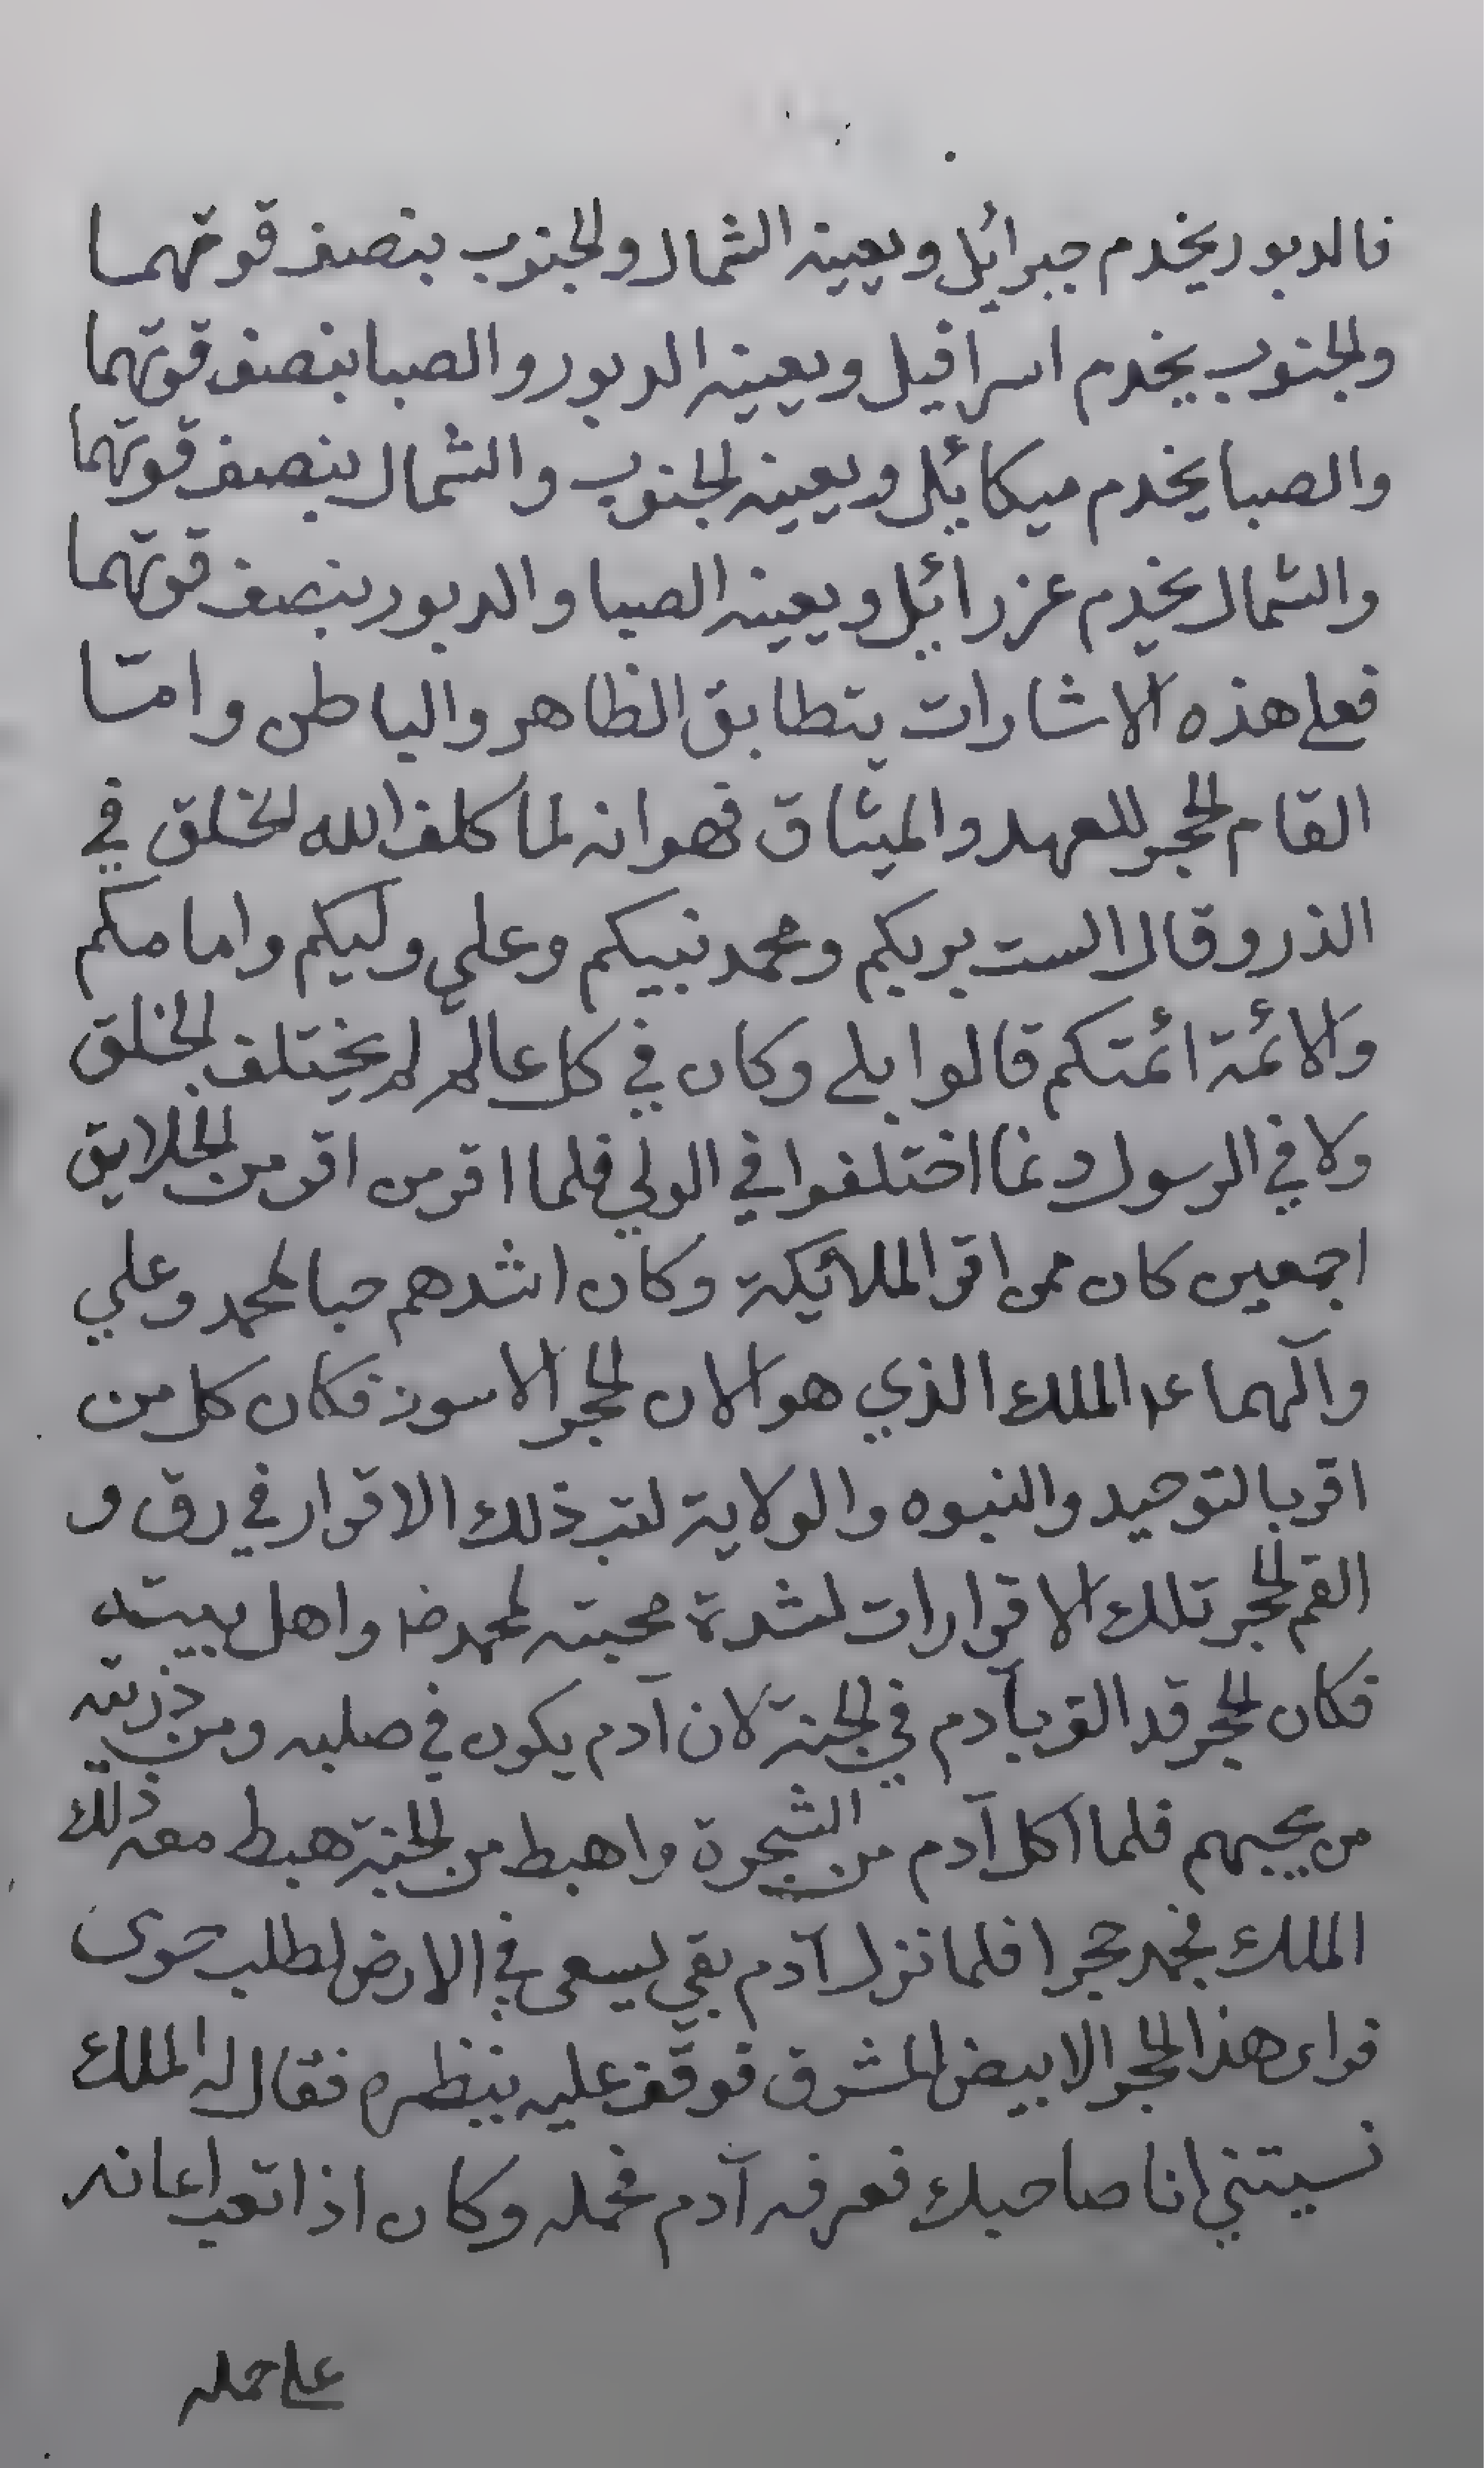 فالدبور يخدم جبرائيل ويعينه الشمال والجنوب بنصف قوتهما
والجنوب يخدم اسرافيل ويعينه الدبور والصبا بنصف قوتهما
والصبا يخدم ميكائيل ويعينه الجنوب والشمال بنصف قوتهما
والشمال يخدم عزرائيل ويعينه الصبا والدبور بنصف قوتهما
فعلى هذه الاشارات يتطابق الظاهر والباطن وامّا
القام الحجر للعهد والميثاق فهو انه لما كلف الله الخلق في
الذر وقال الست بربكم ومحمد نبيكم وعلي وليكم وامامكم
والائمة ائمتكم قالوا بلى وكان في كل عالم لم يختلف الخلق
ولا في الرسول ونما اختلفوا في الولي فلما اقر من اقر من الخلايق
اجمعين كان ممن اقر الملائيكة وكان اشدهم حبا لمحمد وعلي
وآلهما ع الملك الذي هو الان الحجر الاسود فكان كل من
اقر بالتوحيد والنبوه والولاية لتب ذلك الاقرار في رق و
القم الحجر تلك الاقرارات لشدة محبته لمحمد واهل بييته
فكان الحجر قد القر بآدم في الجنة لان آدم يكون في صلبه ومن ذريته
من يحبهم فلما اكل آدم من الشجرة واهبط من الجنة هبط معه ذلك
الملك فجمد حجرا فلما نزل آدم بقي يسعى في الارض لطلب حوى
فراى هذا الحجر الابيض المشرق فوقف عليه ينظره فقال له الملك
نسيتني انا صاحبك فعرفه آدم فحمله وكان اذا تعب اعانه
على حمله